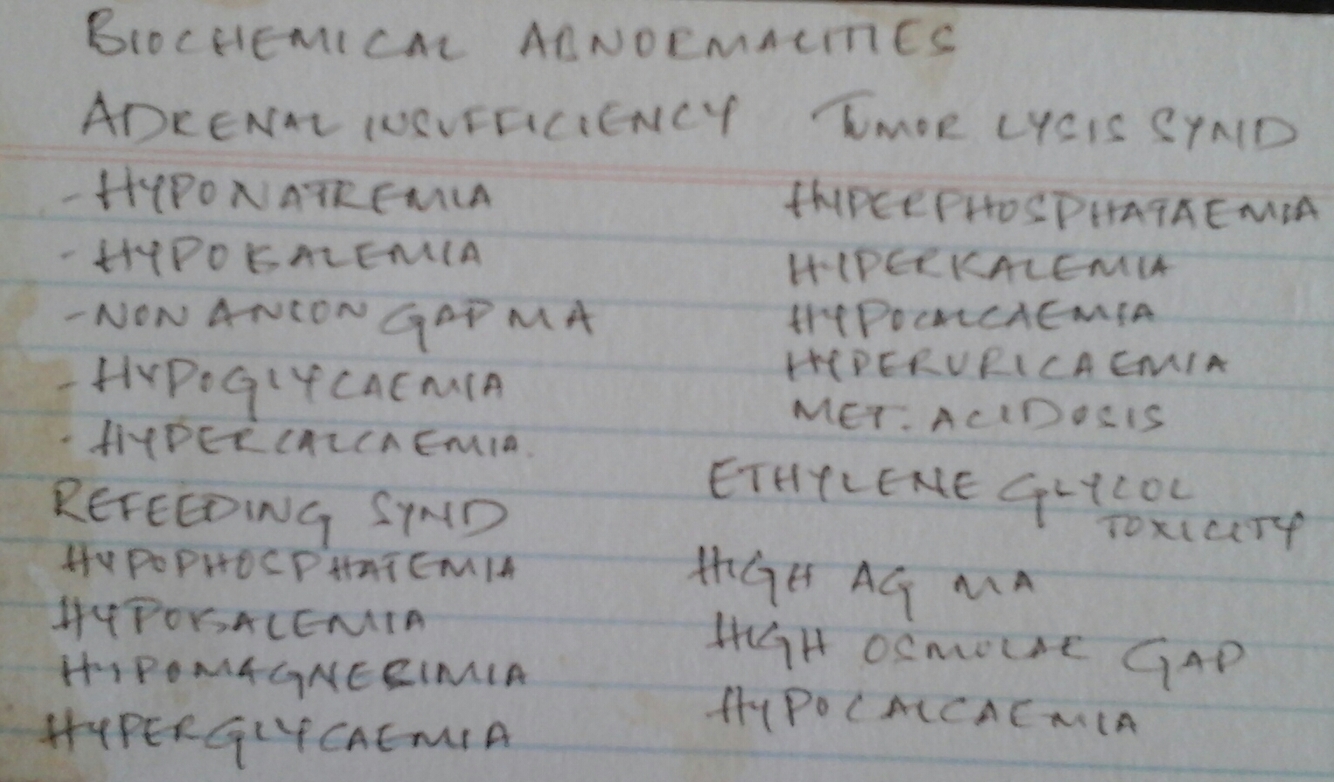 BIOCHEMICAL ABNORMALITIES
ADRENAL INSUFFICIENCY
- HYPONATREMIA
- HYPOKALEMIA
- NON ANION GAP MA
- HYPOGLYCAEMIA
- HYPERCALCAEMIA.
REFEEDING SYND
HYPOPHOSPHATEMIA
HYPOKALEMIA
HYPOMAGNESIMIA
HYPERGLYCAEMIA
TUMOR LYSIS SYND
HYPERPHOSPHATAEMIA
HYPERKALEMIA
HYPOCALCAEMIA
HYPERURICAEMIA
MET. ACIDOSIS
ETHYLENE GLYCOL
TOXICITY
HIGH AG MA
HIGH OSMOLAR GAP
HYPOCALCAEMIA